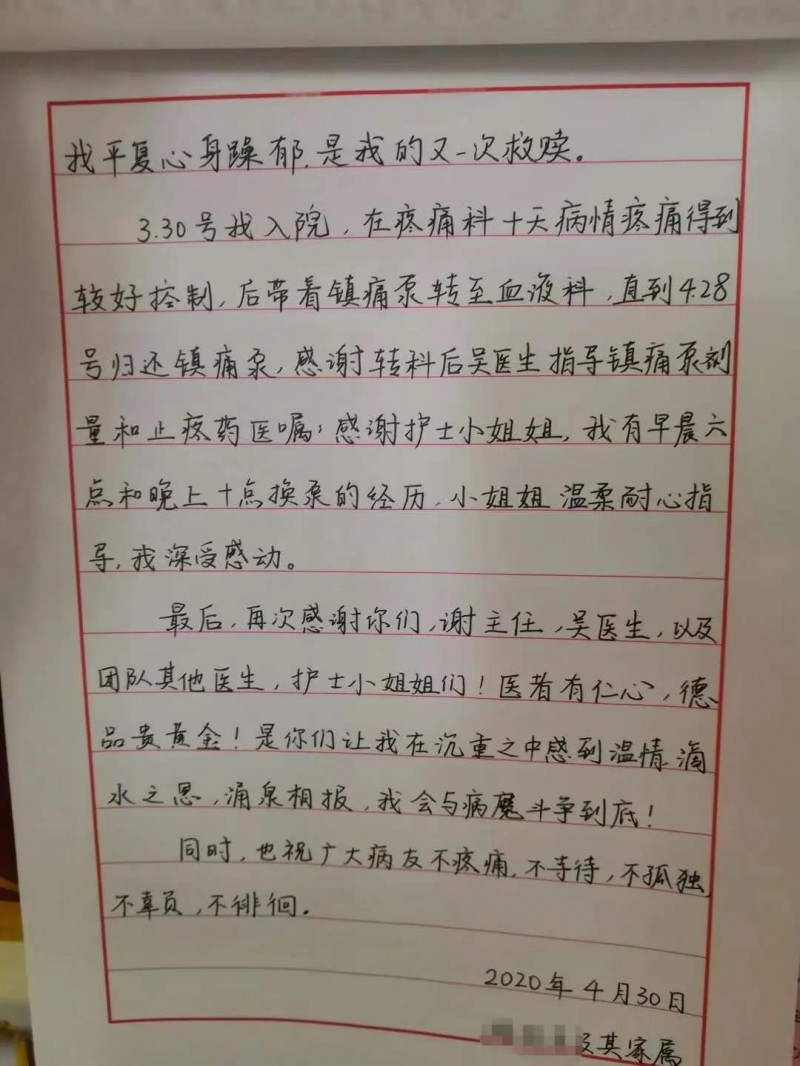 我平复心身躁郁,是我的又一次救赎。
3.30号我入院,在疼痛科十天病情疼痛得到
较好控制,后带着镇痛泵转至血液科,直到4.28
号归还镇痛泵,感谢转科后吴医生指导镇痛泵剂
量和止疼药医嘱;感谢护士小姐姐,我有早晨六
点和晚上十点换泵的经历,小姐姐温柔耐心指
导,我深受感动。
最后,再次感谢你们,谢主任,吴医生,以及
团队其他医生,护士小姐姐们!医者有仁心,德
品贵黄金!是你们让我在沉重之中感到温情,滴
水之恩,涌泉相报,我会与病魔斗争到底!
同时,也祝广大病友不疼痛,不等待,不孤独,
不辜负,不徘徊。
2020年4月30日
及其家属